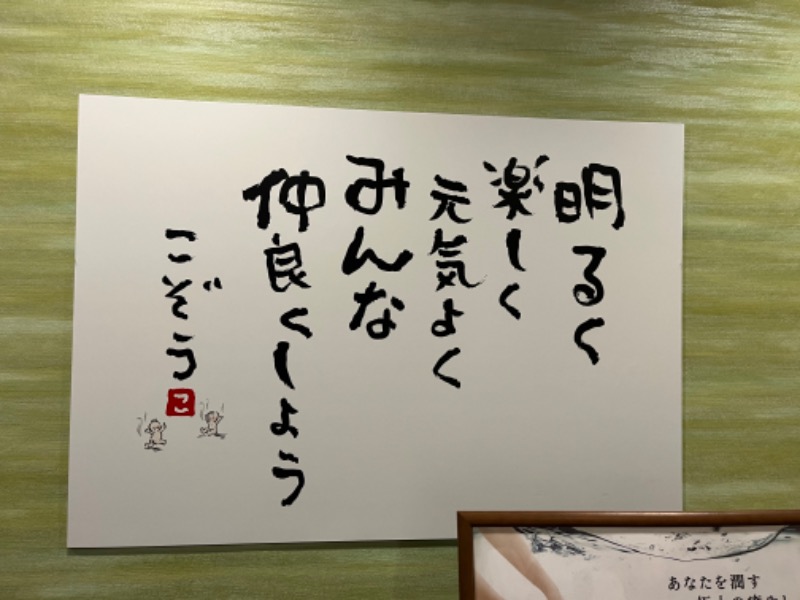 明るく
楽しく
元気よく
みんな
仲良くしよう
こぞう
こ
あなたを潤す